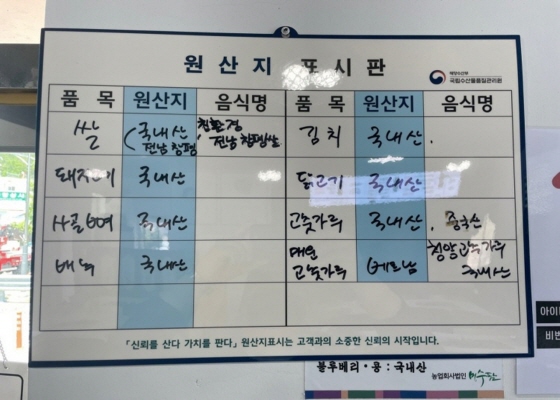 원산지 표시판
해양수산부
국립수산물품질관리원
품 목 원산지 음식명 품 목 원산지 음식명
쌀 국내산 친환경 김치 국내산.
(전남 함평 전남 함평쌀
돼지고기 국내산 닭고기 국내산
사골뼈 국내산 고춧가루 국내산, 중국산
배추 국내산 매운 고춧가루 베트남 청양고춧가루 국내산
「신뢰를 산다 가치를 판다」 원산지표시는 고객과의 소중한 신뢰의 시작입니다.
블루베리·콩 : 국내산
농업회사법인
아이
비번